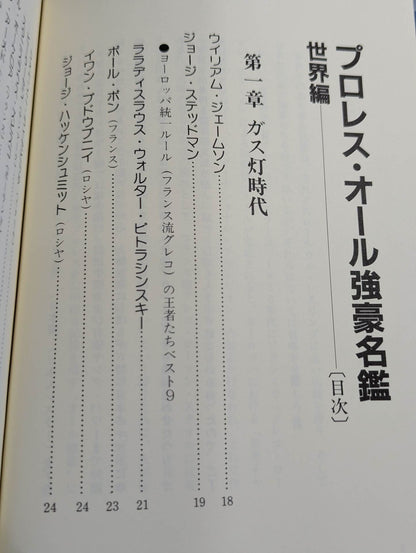 プロレス・オール強豪名鑑
世界編――〔目次〕
第一章 ガス灯時代
ウィリアム・ジェームソン……18
ジョージ・ステッドマン……19
●ヨーロッパ統一ルール（フランス流グレコ）の王者たちベスト9
ララディスラウス・ウォルター・ピトラシンスキー……21
ポール・ポン（フランス）……23
イワン・プドウブニイ（ロシヤ）……24
ジョージ・ハッケンシュミット（ロシヤ）……24